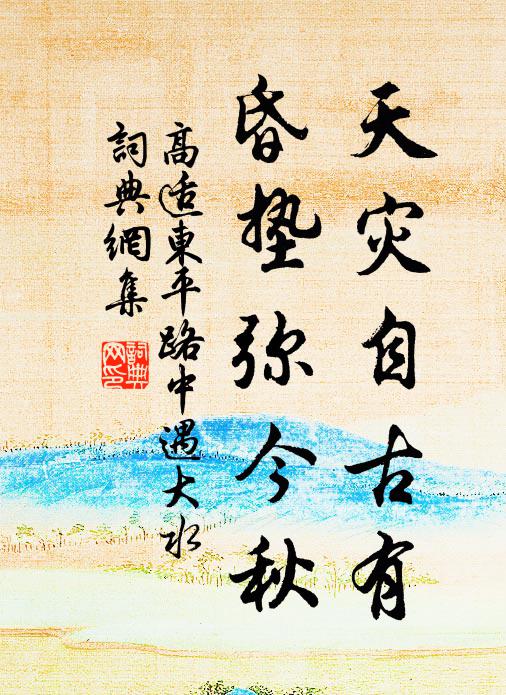 天灾自古有
昏垫弥今秋
高适東平路中遇大水
詞典網集
詞典
网印